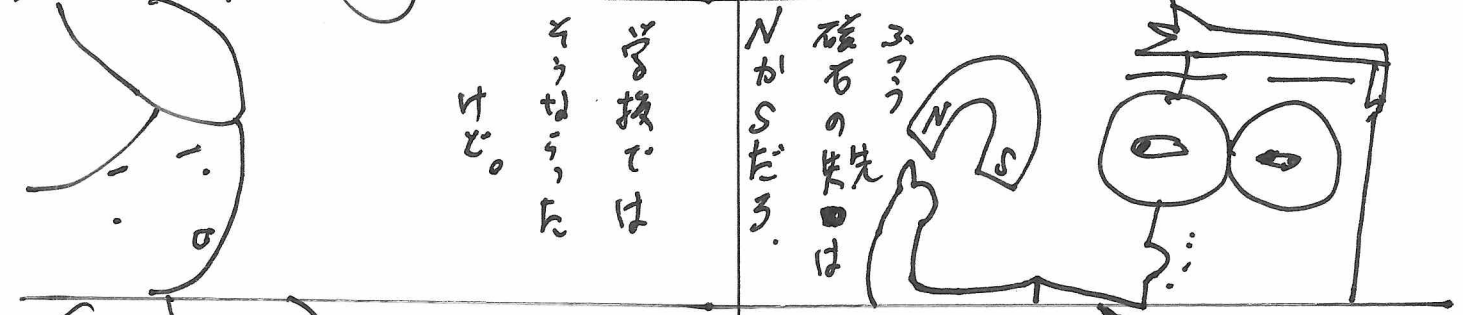 ふつう
磁石の先は
NかSだろ.
N
S
学校では
そうならった
けど。